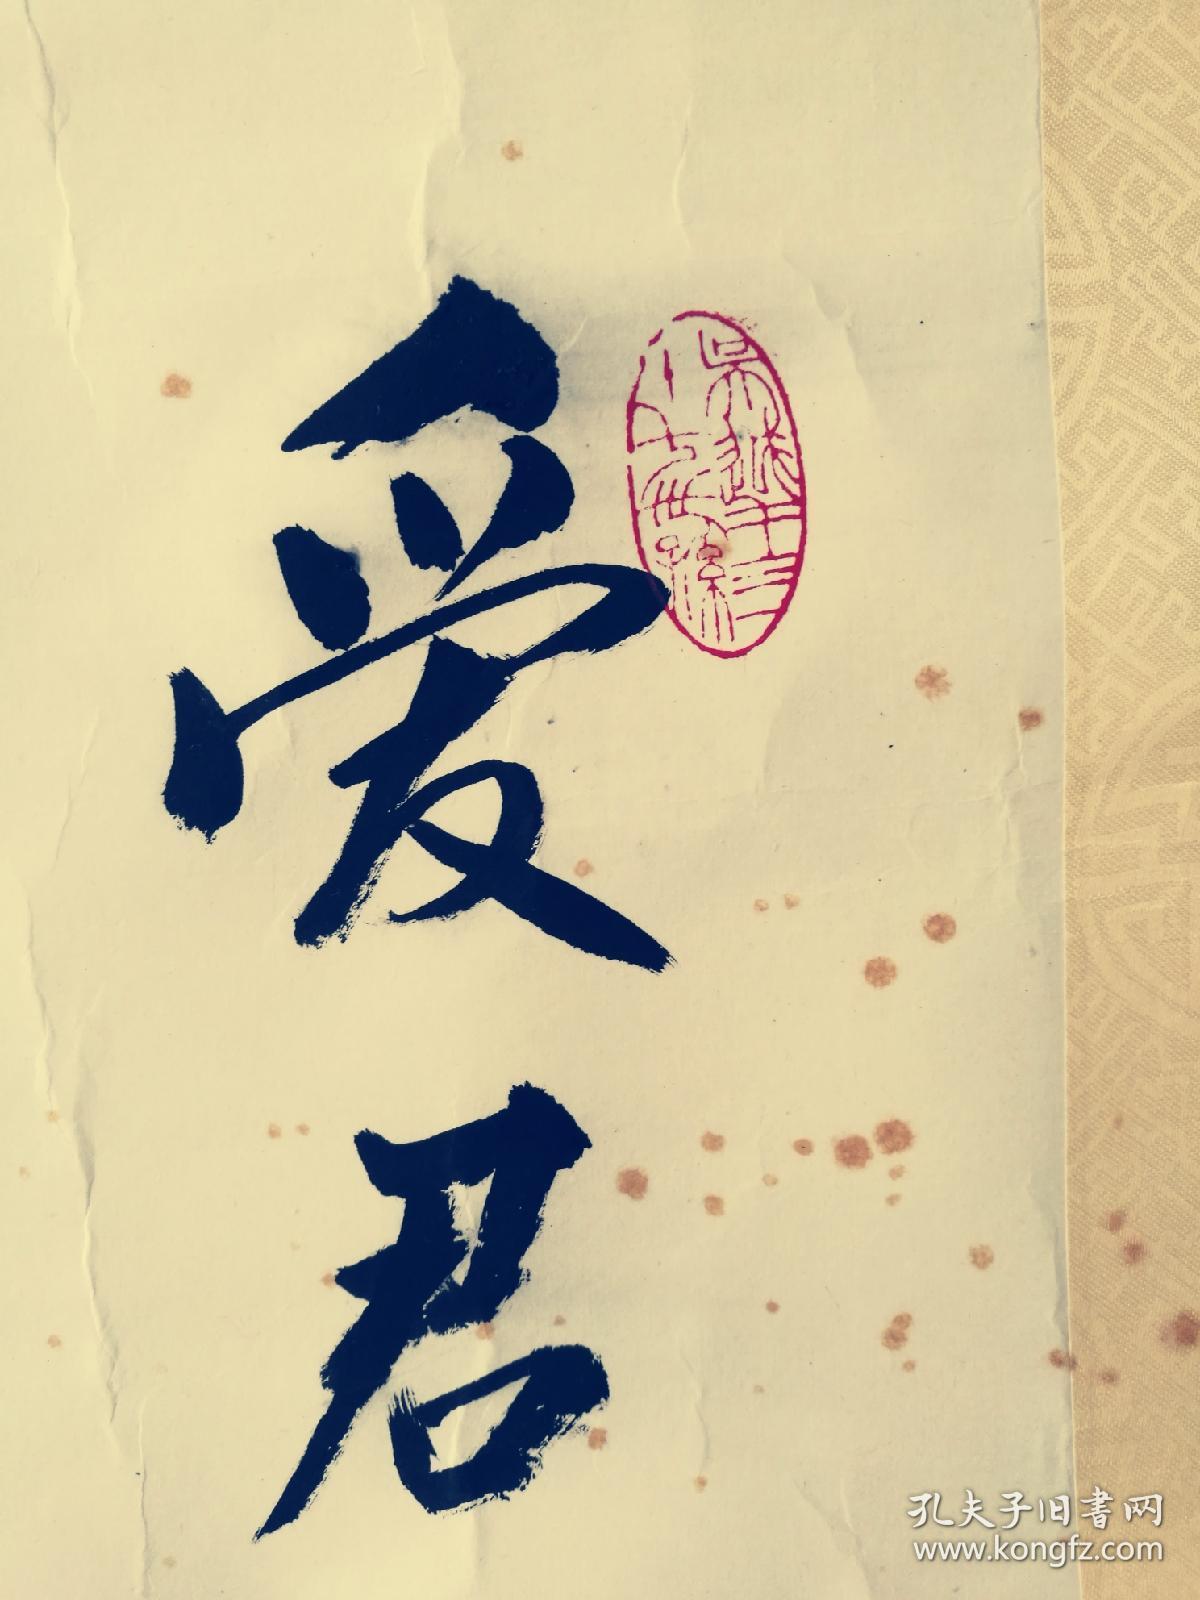 爱君
孔夫子旧書网
www.kongfz.com